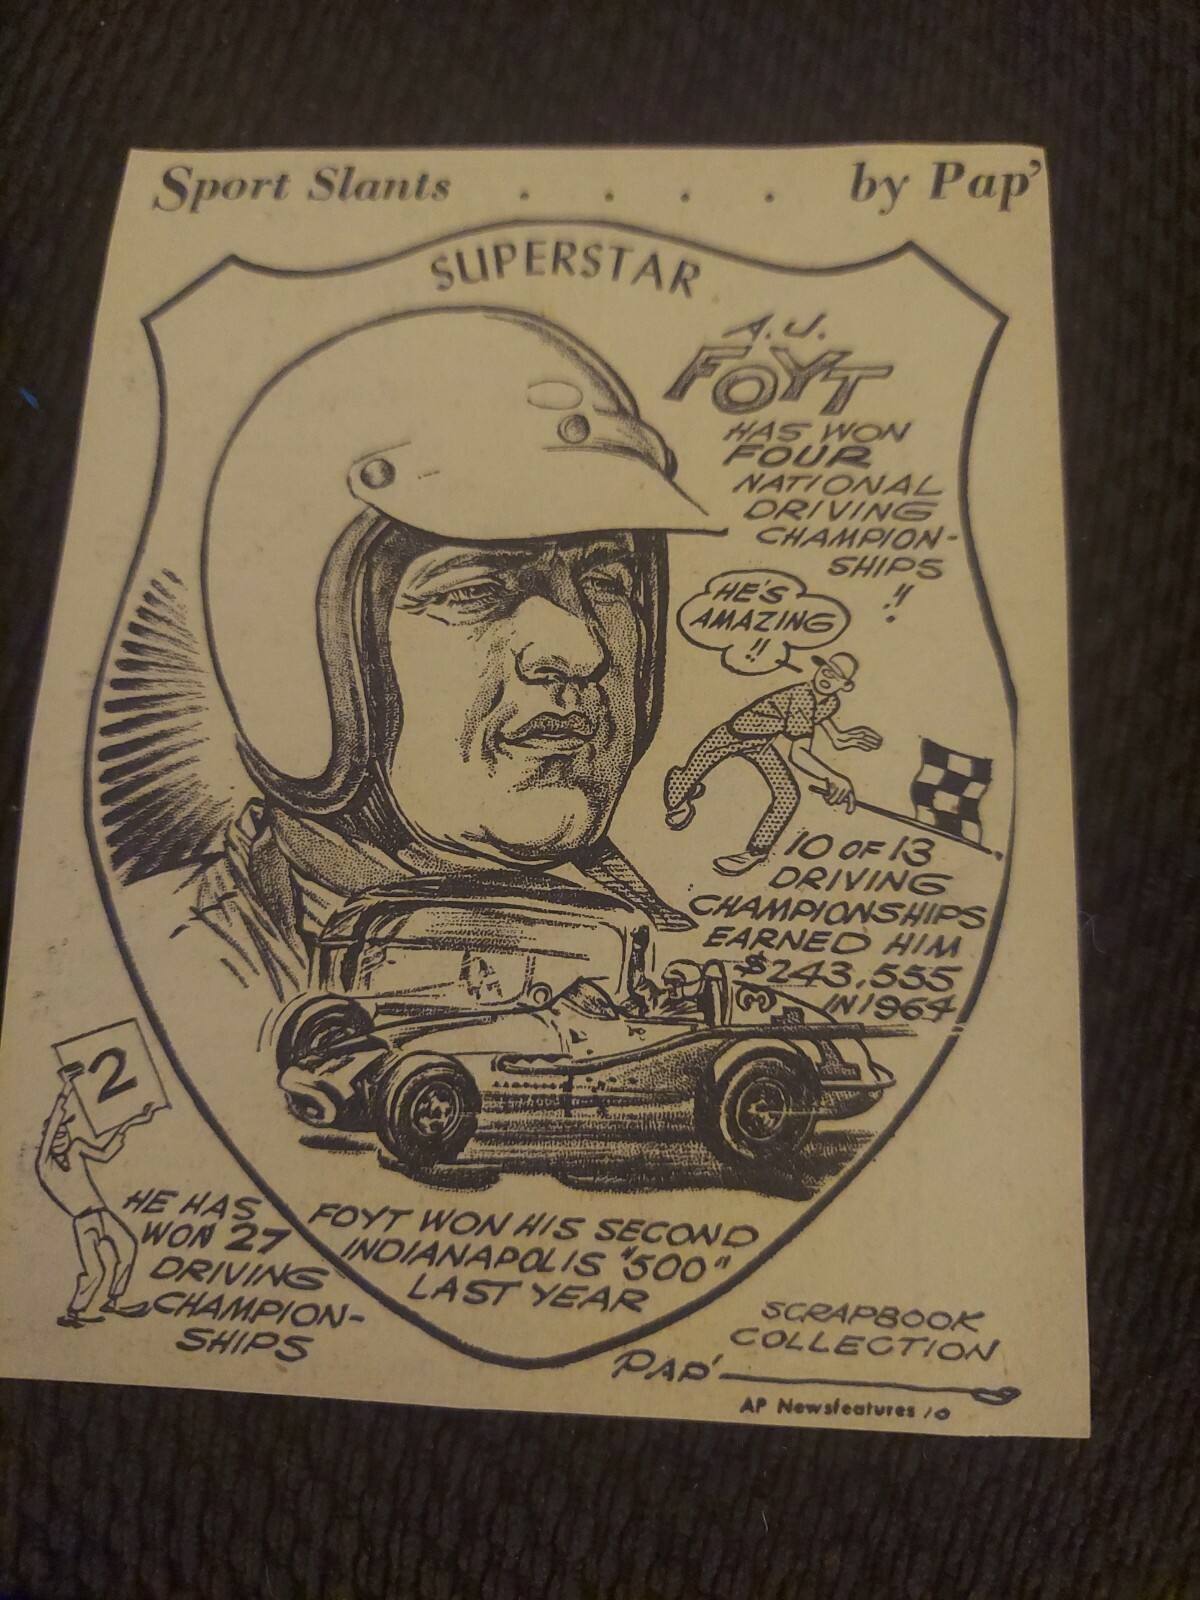 Sport Slants . . . . by Pap'
SUPERSTAR
A.J.
FOYT
HAS WON
FOUR
NATIONAL
DRIVING
CHAMPION-
SHIPS
!!
HE'S
AMAZING
!!
10 OF 13
DRIVING
CHAMPIONSHIPS
EARNED HIM
$243,555
IN 1964
2
HE HAS
WON 27
DRIVING
CHAMPION-
SHIPS
FOYT WON HIS SECOND
INDIANAPOLIS "500"
LAST YEAR
SCRAPBOOK
COLLECTION
PAP'
AP Newsfeatures